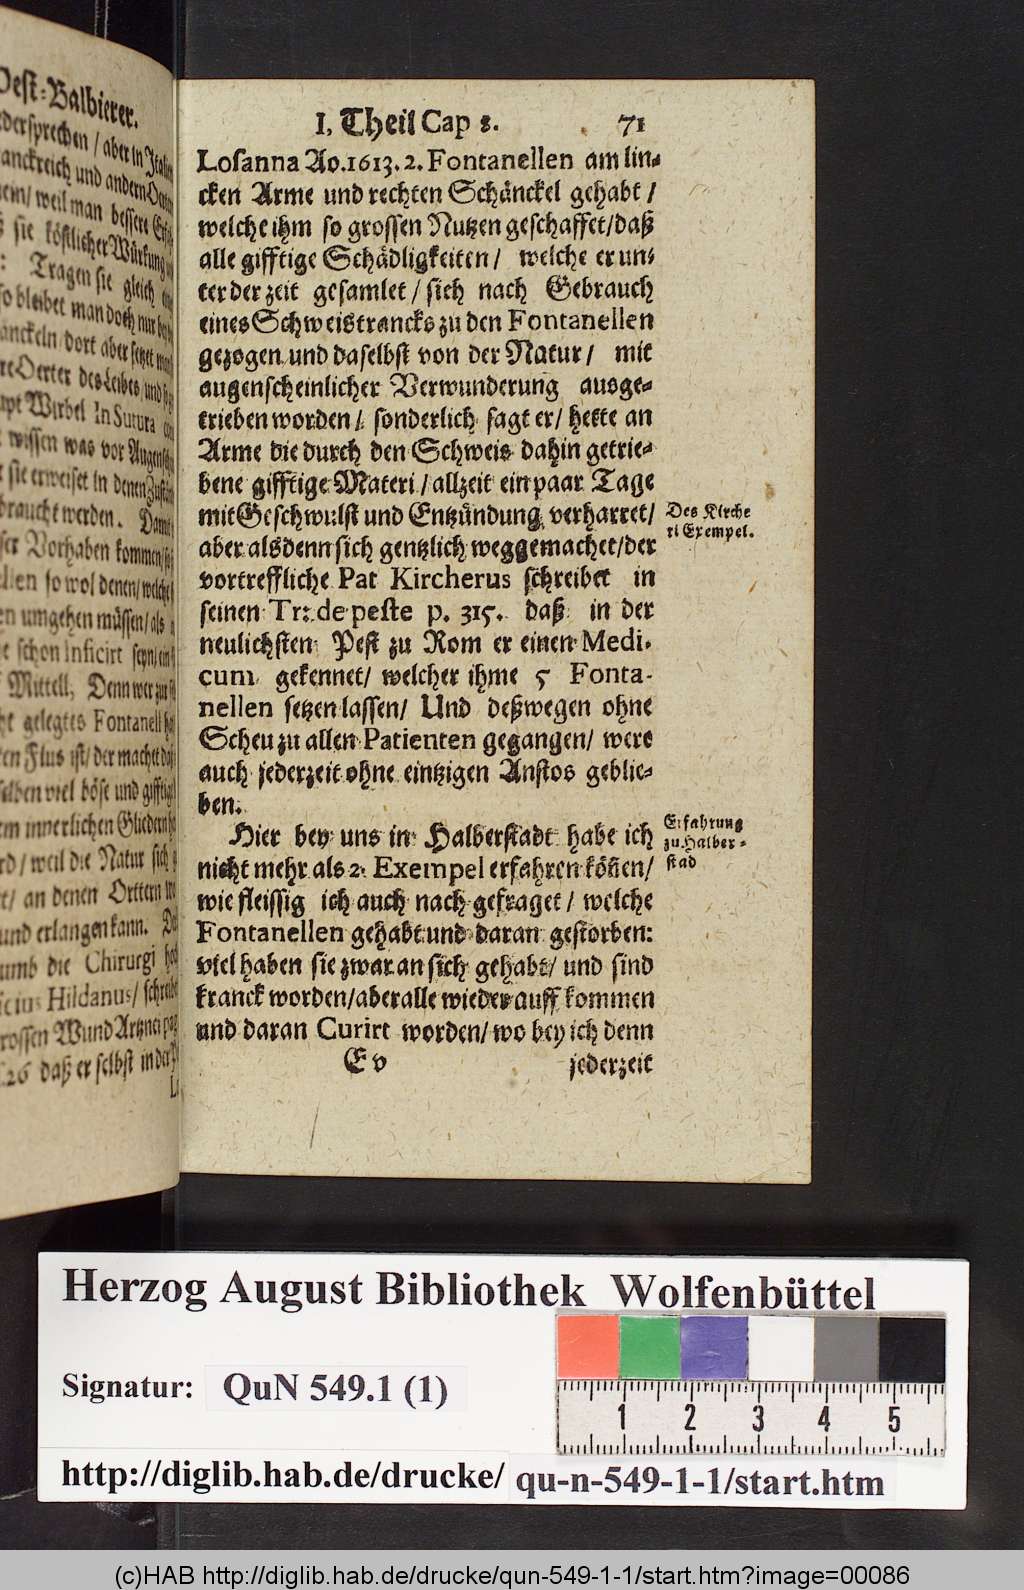 Pest-Balbierer.
dersprechen / aber in
anckreich und andern
weil man bessere
sie köstlicher Würkung
Tragen sie gleich
so bleibet man doch nur
anckeln / dort aber setzet
Oerter des Leibes, und
Wirbel In Sutura
wissen was vor
sie erweiset in denen
braucht werden.
Vorhaben kommen /
so wol denen / welche
umgehen müssen / als
schon Inficirt seyn / ein
Mittell, Denn wer zu
gelegtes Fontanell
Flus ist / der machet
viel böse und gifftige
innerlichen Glieder
weil die Natur sich
an denen Orttern
und erlangen kann.
umb die Chirurgi
Hildanus / schreibe
grossen Wund Artznei
26 daß er selbst in der
I, Theil Cap 8. 71
Losanna Ao. 1613. 2. Fontanellen am lin-
cken Arme und rechten Schänckel gehabt /
welche ihm so grossen Nutzen geschaffet / daß
alle gifftige Schädligkeiten / welche er un-
ter der zeit gesamlet / sich nach Gebrauch
eines Schweistrancks zu den Fontanellen
gezogen und daselbst von der Natur / mit
augenscheinlicher Verwunderung ausge-
trieben worden / sonderlich sagt er / hette an
Arme die durch den Schweis dahin getrie-
bene gifftige Materi / allzeit ein paar Tage
mit Geschwulst und Entzündung verharret /
Des Kirche
aber alsdenn sich gentzlich weggemachet / der
ri Exempel.
vortreffliche Pat Kircherus schreibet in
seinen Tr: de peste p. 315. daß in der
neulichsten Pest zu Rom er einen Medi-
cum gekennet / welcher ihme 5 Fonta-
nellen setzen lassen / Und deßwegen ohne
Scheu zu allen Patienten gegangen / were
auch jederzeit ohne eintzigen Anstos geblie-
ben.
Hier bey uns in Halberstadt habe ich
Erfahrung
zu Halber-
stad
nicht mehr als 2. Exempel erfahren köñen /
wie fleissig ich auch nach gefraget / welche
Fontanellen gehabt und daran gestorben:
viel haben sie zwar an sich gehabt / und sind
kranck worden / aber alle wieder auff kommen
und daran Curirt worden / wo bey ich denn
E v jederzeit
Herzog August Bibliothek Wolfenbüttel
Signatur: QuN 549.1 (1)
1 2 3 4 5
http://diglib.hab.de/drucke/ qu-n-549-1-1/start.htm
(c)HAB http://diglib.hab.de/drucke/qun-549-1-1/start.htm?image=00086